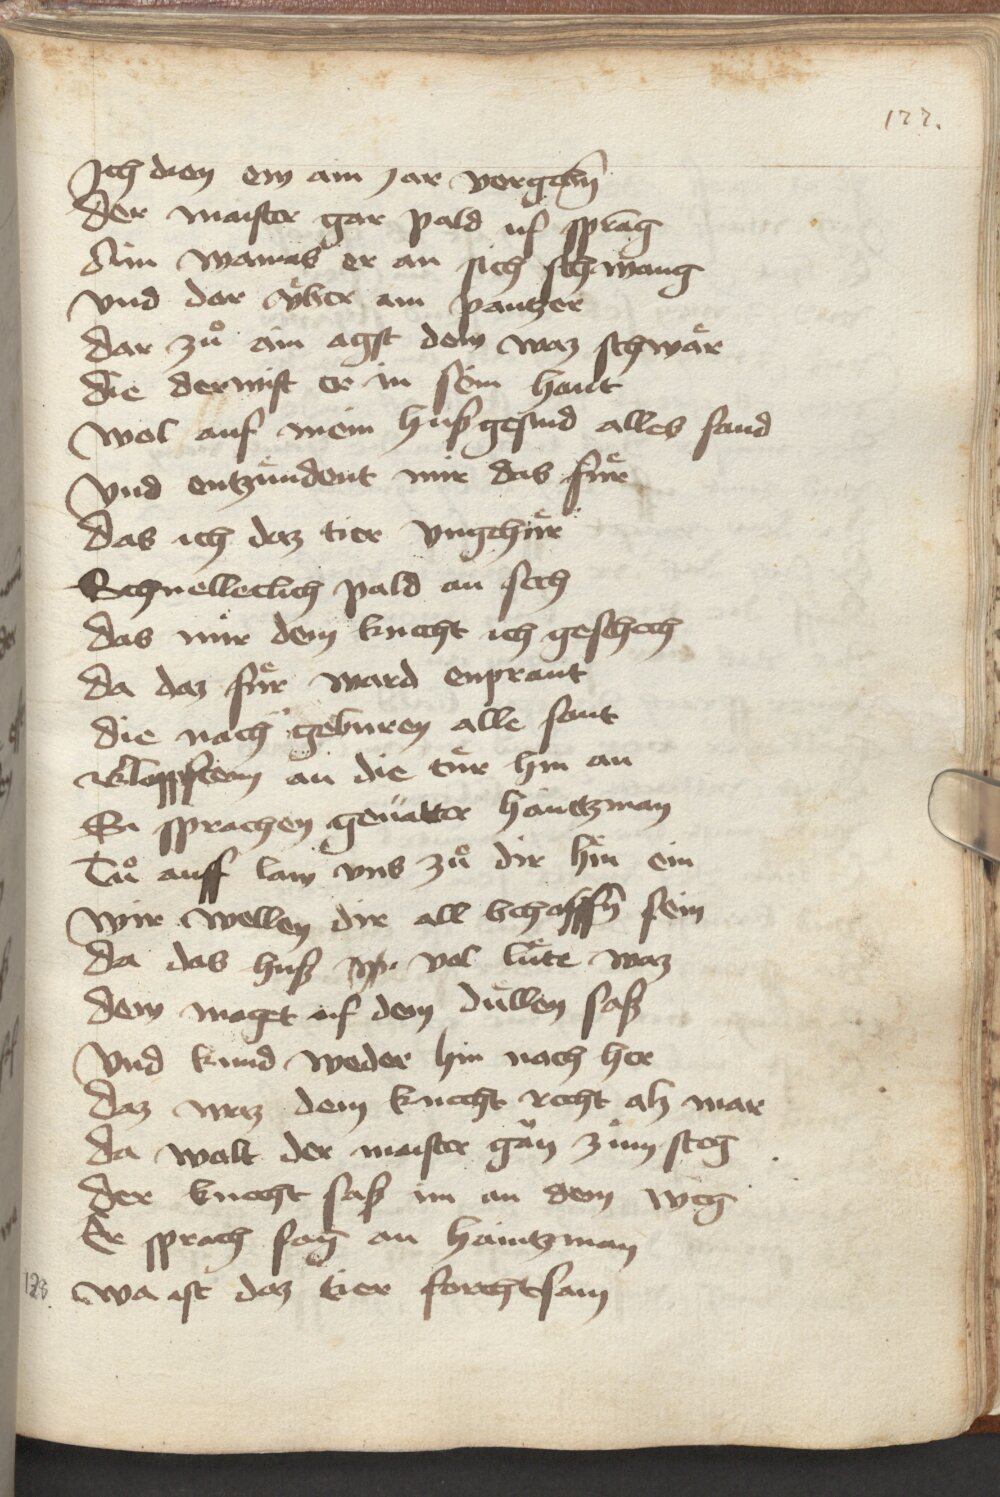 177.
Ich dien ew ain jar vergebn̄
Der maister gar pald uf sprāg
Ain wamas er an sich schwang
Vnd dar v̈ber ain pantzer
Dar zuͦ ain agst dem waz schwär
Die derwist er in sein hant
Wol auf mein hußgesind alles sand
Vnd entzündent mir das für
Das ich daz tier vngehür
Schnelleclich pald an sech
Das mir dem knecht ich geschech
Da daz für ward enprant
Die nach geburen alle sant
Klopfftem an die tür hin an
Sy sprachen geuatter haintzman
Tuͦ auff law vns zuͦ dir hin ein
Wir wellen dir all beholffn̄ sein
Da das huß vol lüte waz
Dem maget uf dem düllen saß
Vnd kund weder hin nach her
Daz waz dem knecht recht alz mar
Da walt der maister gän zum steg
Der knecht saß im an dem weg
Er sprach sag an haintzman
Wa ist daz tier forchtsam
123.